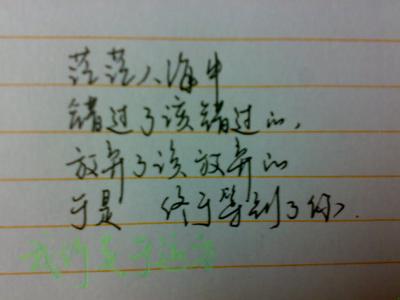 茫茫人海中
错过了该错过的,
放弃了该放弃的
于是 终于等到了你.
我们是